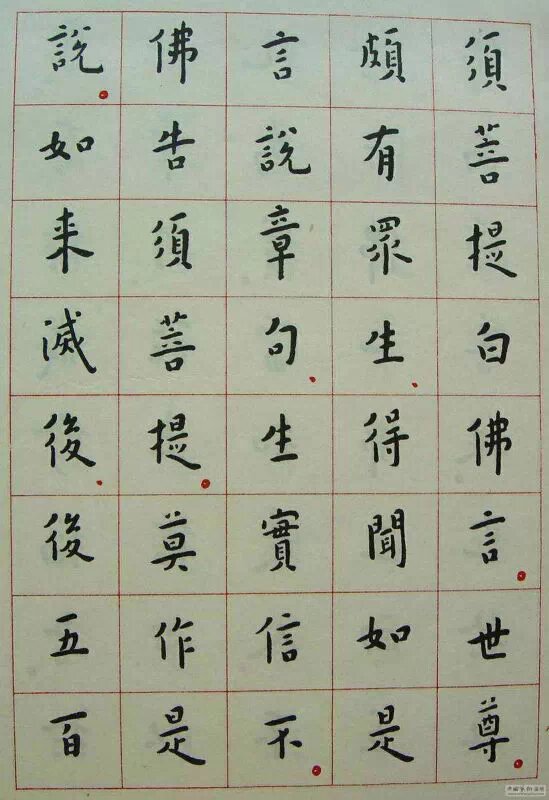 須菩提白佛言世尊
頗有眾生得聞如是
言說章句生實信不
佛告須菩提莫作是
說如來滅後後五百